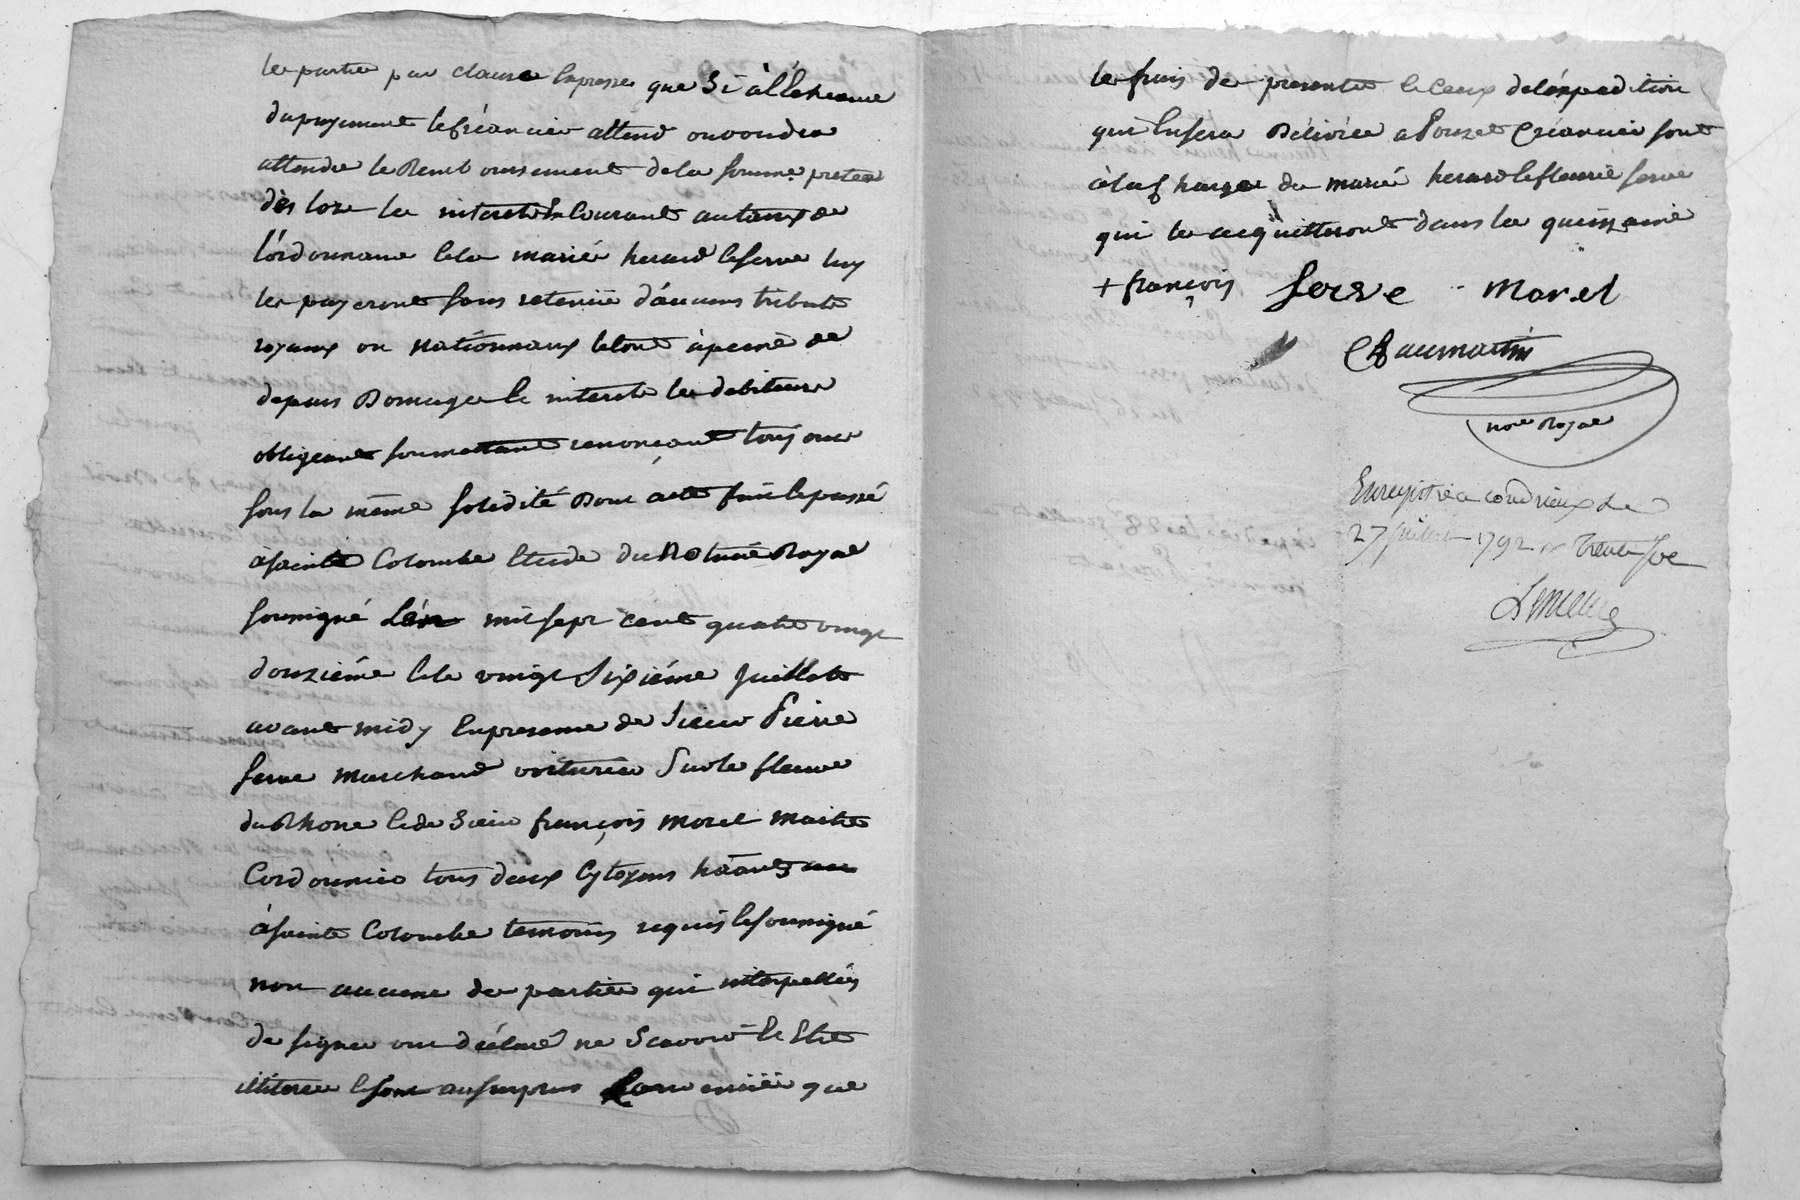 les parties par clause expresse que si à l'écheance
du payement le créancier attend ou voudra
attendre le Remboursement de la somme pretée
dès lors les interets En Courant au taux de
l'ordonnance et les mariés herard et serve luy
les payeront sans retenüe d'aucuns tributs
royaux ou nationnaux le tout à peine de
depens Domages et interets les debiteurs
obligeant soumettant renonçant toujours
sous la même solidité Dont acte fait et passé
a sainte Colombe Etude du Notaire Royal
soussigné L'an mil sept cent quatre vingt
douzième et le vingt sixiéme Juillet
avant midy En presence de sieur Pierre
serve marchand voiturier sur le fleuve
du Rhone et de sieur françois morel maitre
Cordonnier tous deux Cytoyens h'ants
à sainte Colombe temoins requis et soussigné
non aucune des parties qui interpellées
de signer ont déclaré ne scavoir et Etre
illiterées et sont au surplus convenües que
les frais des presentes et Ceux de l'éxpedition
qui En sera Délivrée a Pouzet Créancier sont
à la charge des mariés herard et fleurie serve
qui les acquitteront dans la quinzaine
+ françois serve morel
Chaumartin
nore Royal
Enregistré a condrieux le
27 juillet 1792 r trente sols